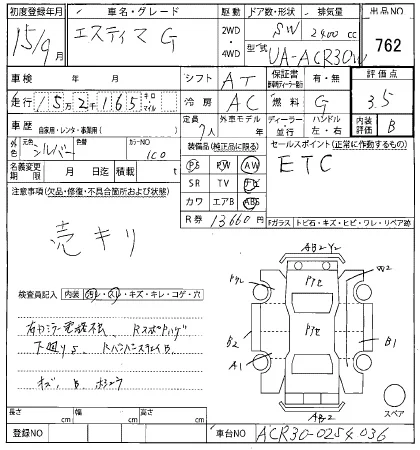 初度登録年月 車名・グレード 駆動 ドア数・形状 排気量 出品NO
15/9月 エスティマ G 2WD ・ 4WD SW 2400 cc 762
型式 UA-ACR30W
車検 年 月 シフト AT 保証書 有・無 評価点
走行 15万2千165 キロ マイル 冷房 AC 燃料 G 3.5
車歴 自家用・レンタ・事業用( ) 定員 7人 外車モデル 年 ディーラー 並行 ハンドル 左・右 内装評価 B
外色 元色 シルバー 色替 カラーNO 1C0
装備品(純正品に限る) セールスポイント(正常に作動するもの)
名義変更期限 月 日迄 積載 t
PS PW AW ETC
SR TV ナビ
カワ エアB ABS
R券 13660円
注意事項(欠品・修復・不具合箇所および状態)
売キリ
Fガラス トビ石・キズ・ヒビ・ワレ・リペア跡
検査員記入 内装 ヨレ・スレ・キズ・キレ・コゲ・穴
下廻りS
キズ、B
AB2 Y2
トケ
W2
B2
B1
A1
AB2
スペア
長さ cm 幅 cm 高さ cm
登録NO 車台NO ACR30-0254036